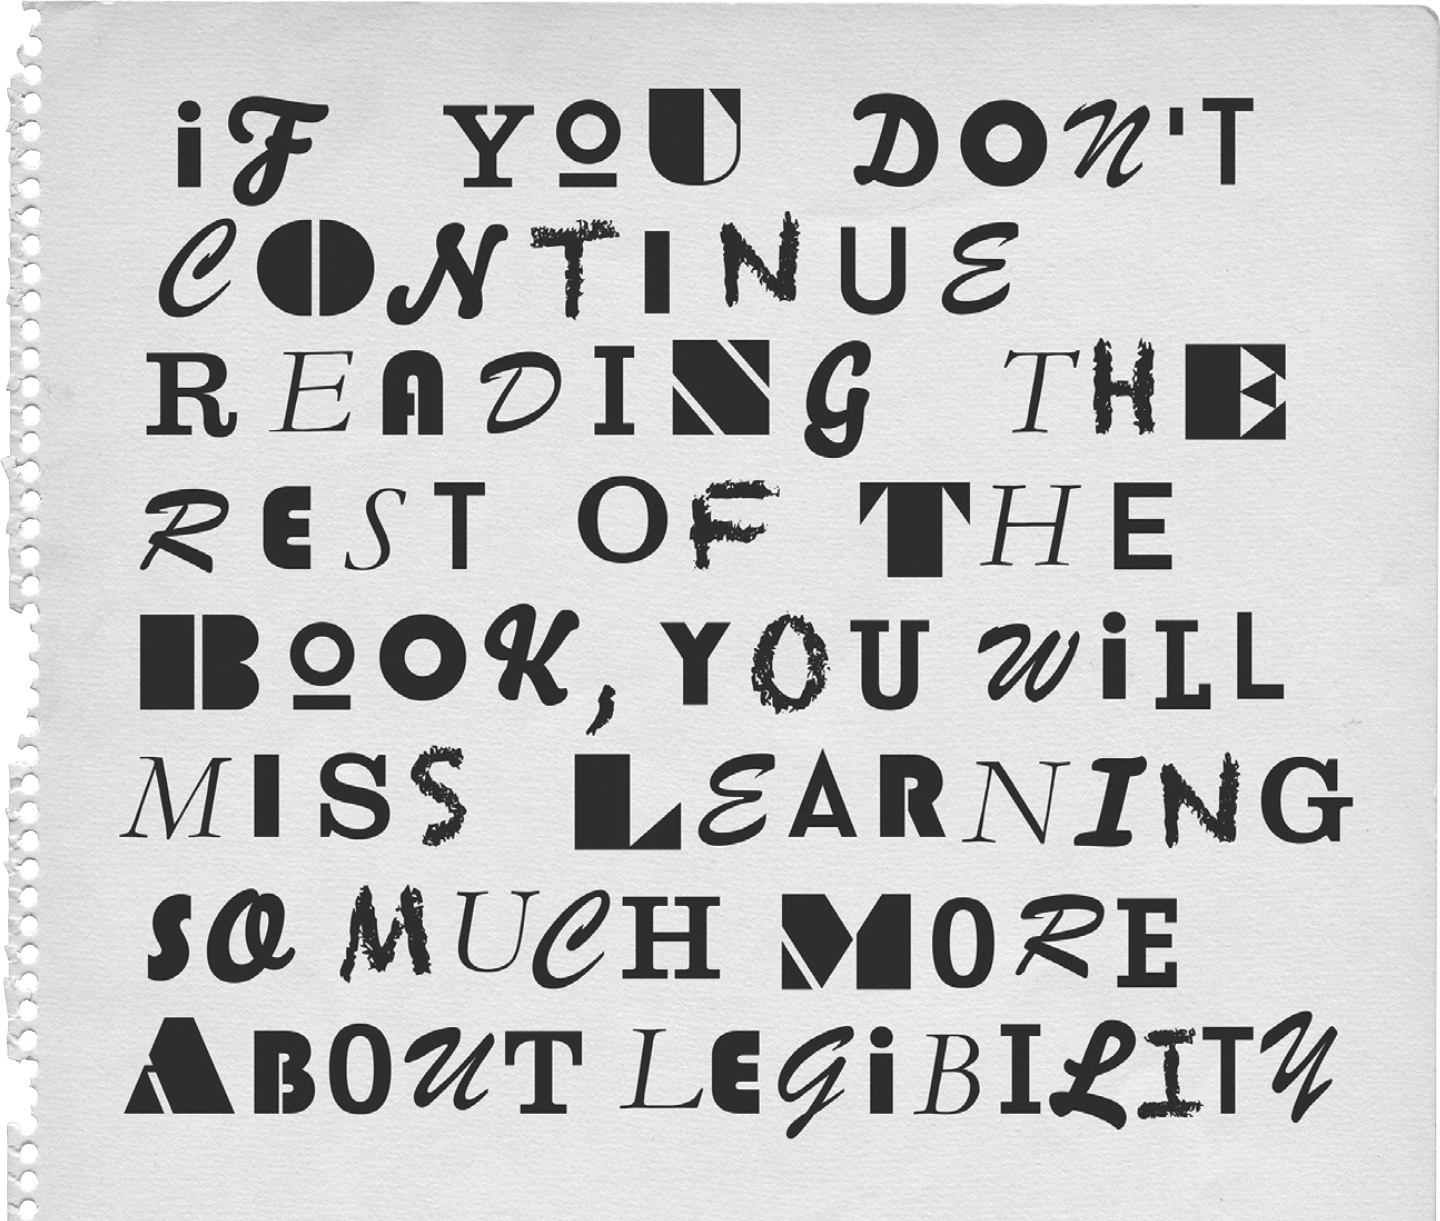 iF YoU DON'T
CONTINUE
READING THE
REST OF THE
BOOK, YOU WiLL
MISS LEARNING
SO MUCH MORE
ABOUT LEGiBILITY